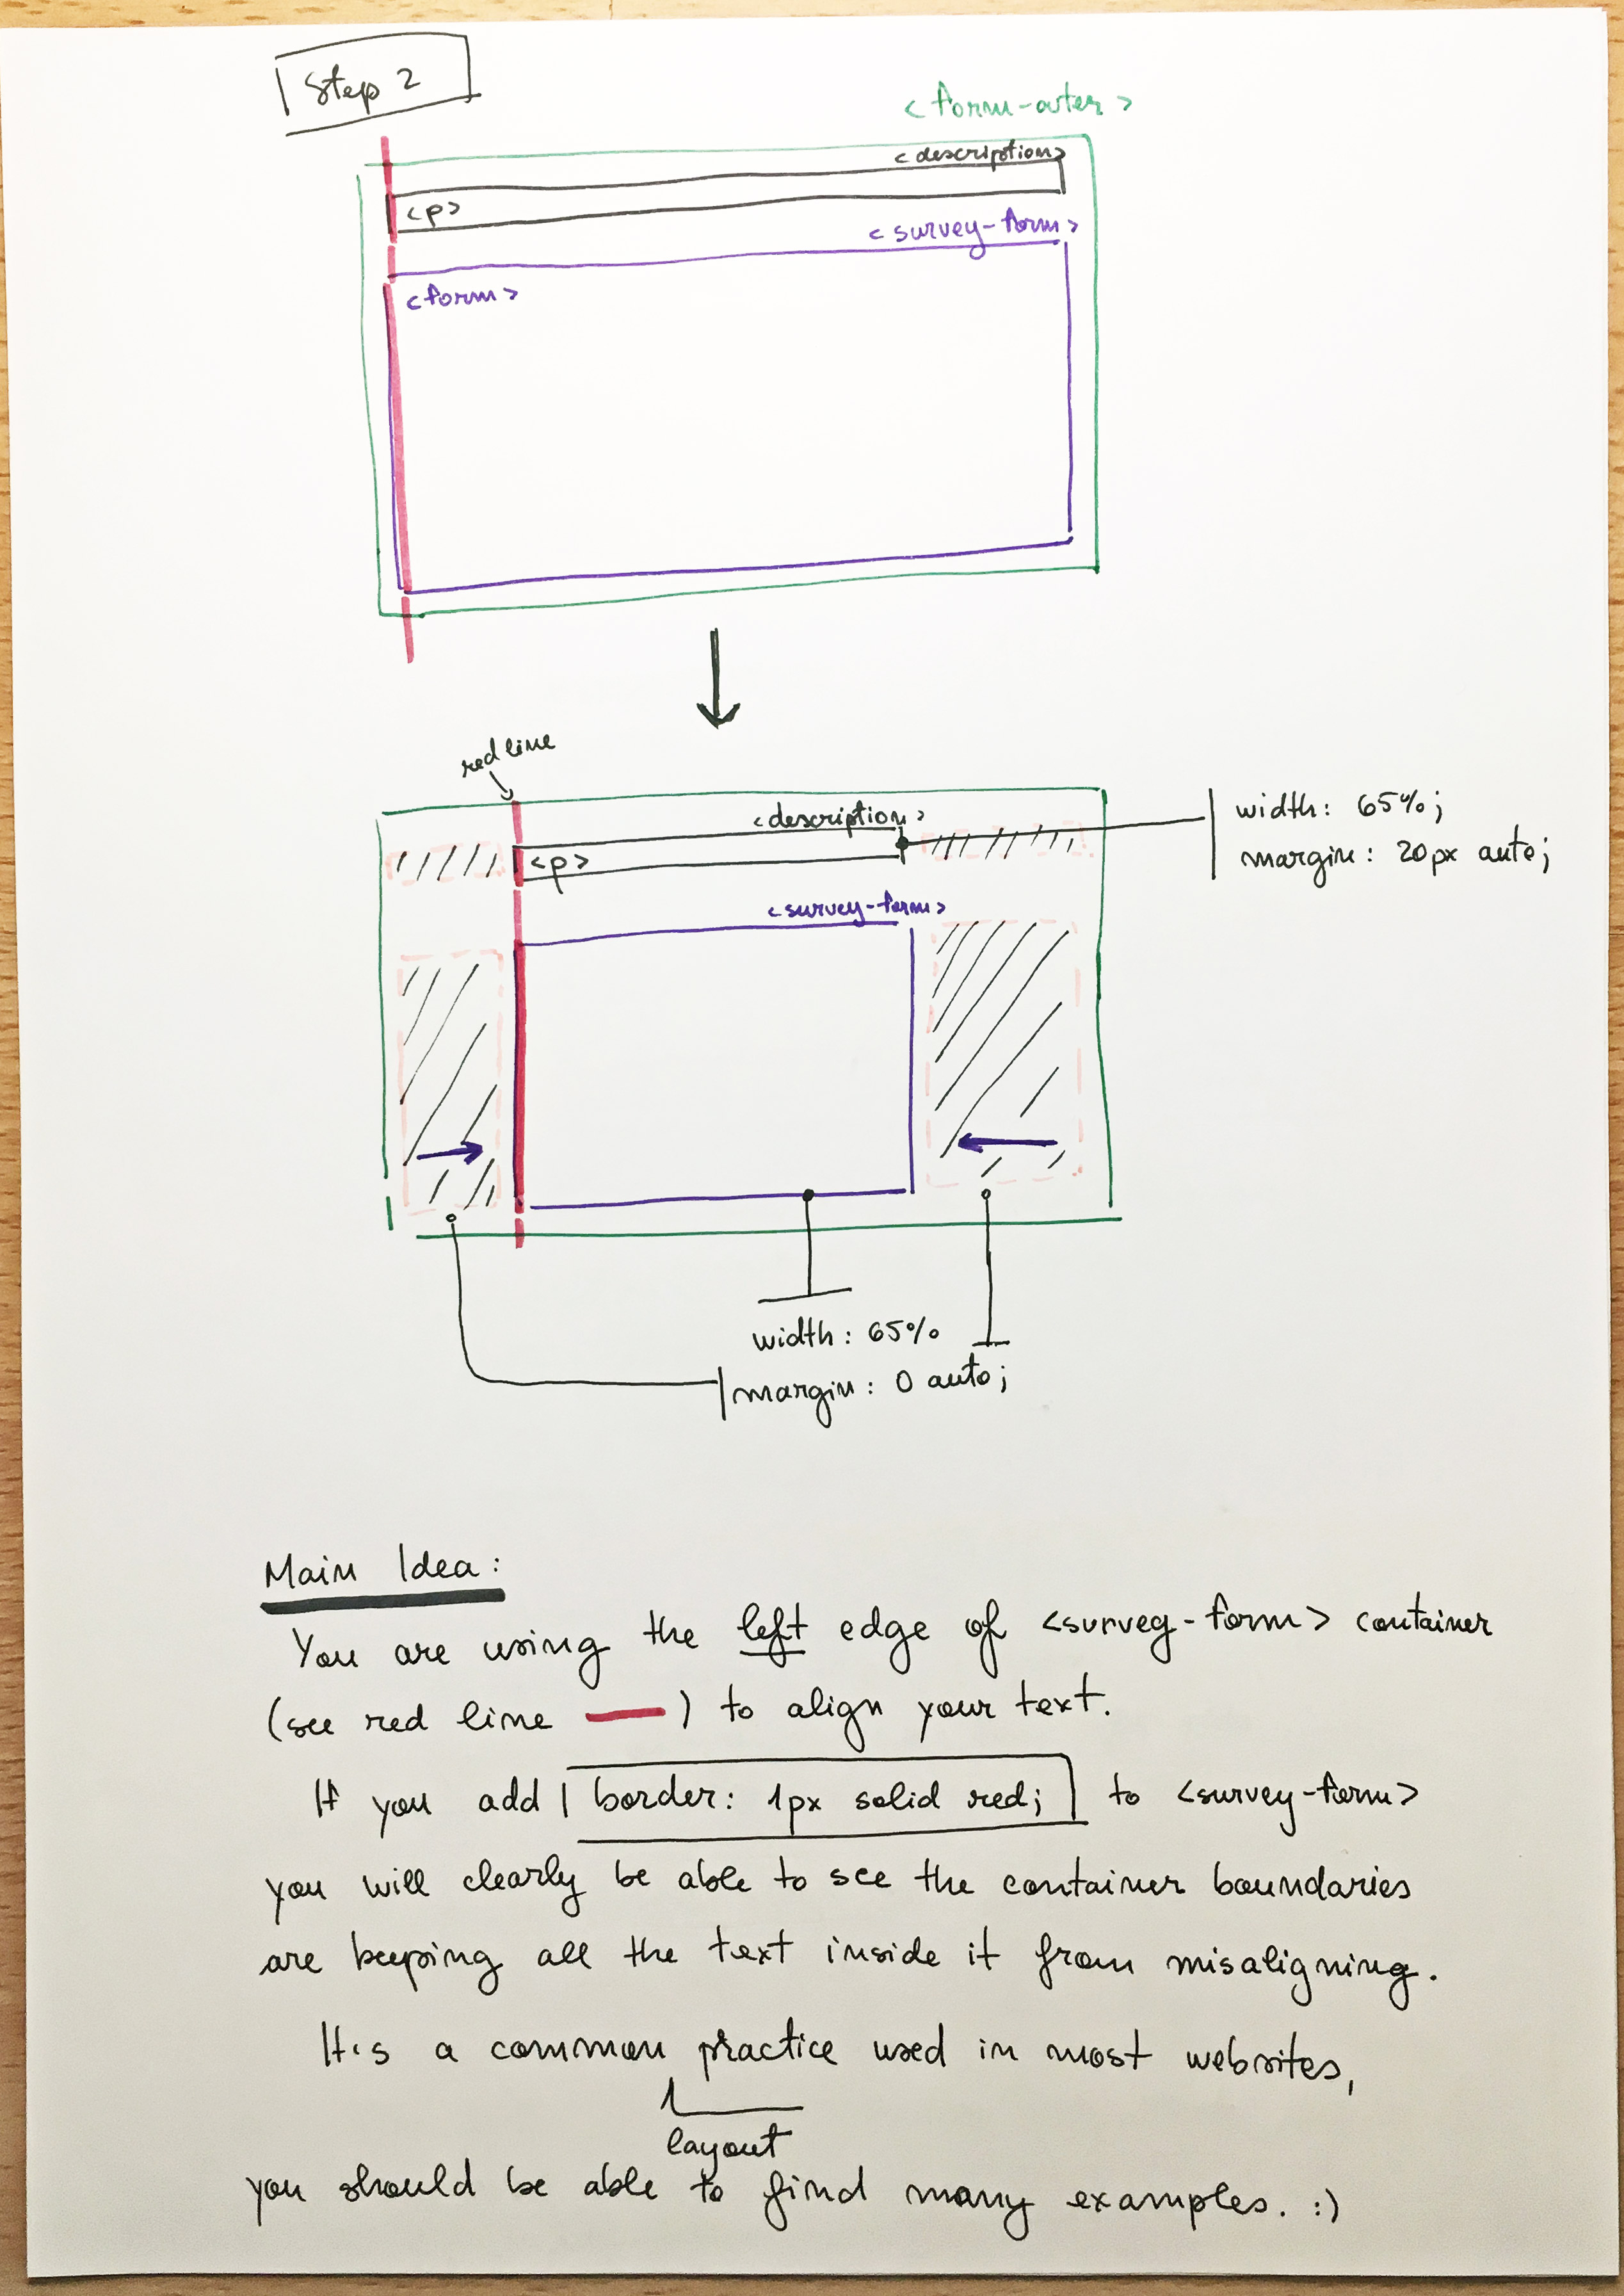 Step 2
<form-outer>
<description>
<p>
<survey-form>
<form>
red line
<description>
<p>
width: 65%;
margin: 20px auto;
<survey-form>
width: 65%
margin: 0 auto;
Main Idea:
You are using the left edge of <survey-form> container
(see red line —) to align your text.
If you add border: 1px solid red; to <survey-form>
you will clearly be able to see the container boundaries
are keeping all the text inside it from misaligning.
It's a common practice used in most websites,
layout
you should be able to find many examples. :)